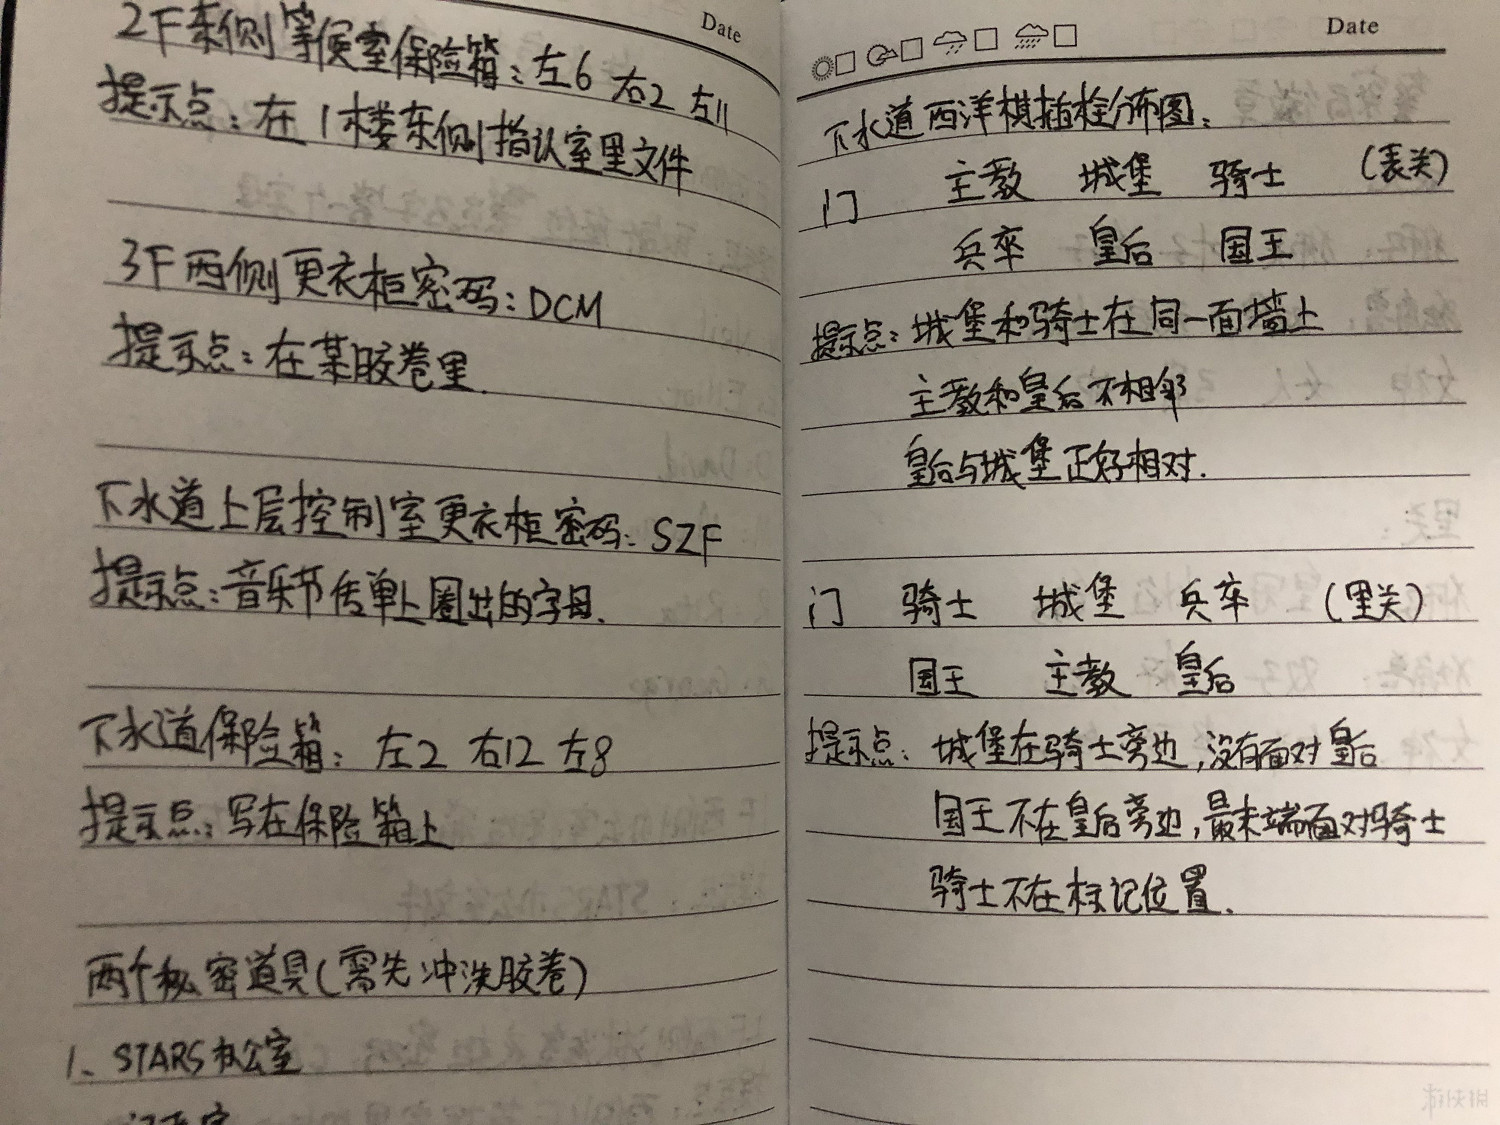 Date
2F东侧等候室保险箱：左6 右2 左11
提示点：在1楼东侧指认室里文件
3F西侧更衣柜密码：DCM
提示点：在某胶卷里.
下水道上层控制室更衣柜密码：SZF
提示点：音乐节传单上圈出的字母.
下水道保险箱：左2 右12 左8
提示点：写在保险箱上
两个秘密道具(需先冲洗胶卷)
1、STARS办公室
Date
下水道西洋棋插栓分布图：
门 主教 城堡 骑士 (表关)
兵卒 皇后 国王
提示点：城堡和骑士在同一面墙上
主教和皇后不相邻
皇后与城堡正好相对.
门 骑士 城堡 兵卒 (里关)
国王 主教 皇后
提示点：城堡在骑士旁边,没有面对皇后
国王不在皇后旁边,最末端面对骑士
骑士不在标记位置.
游侠网